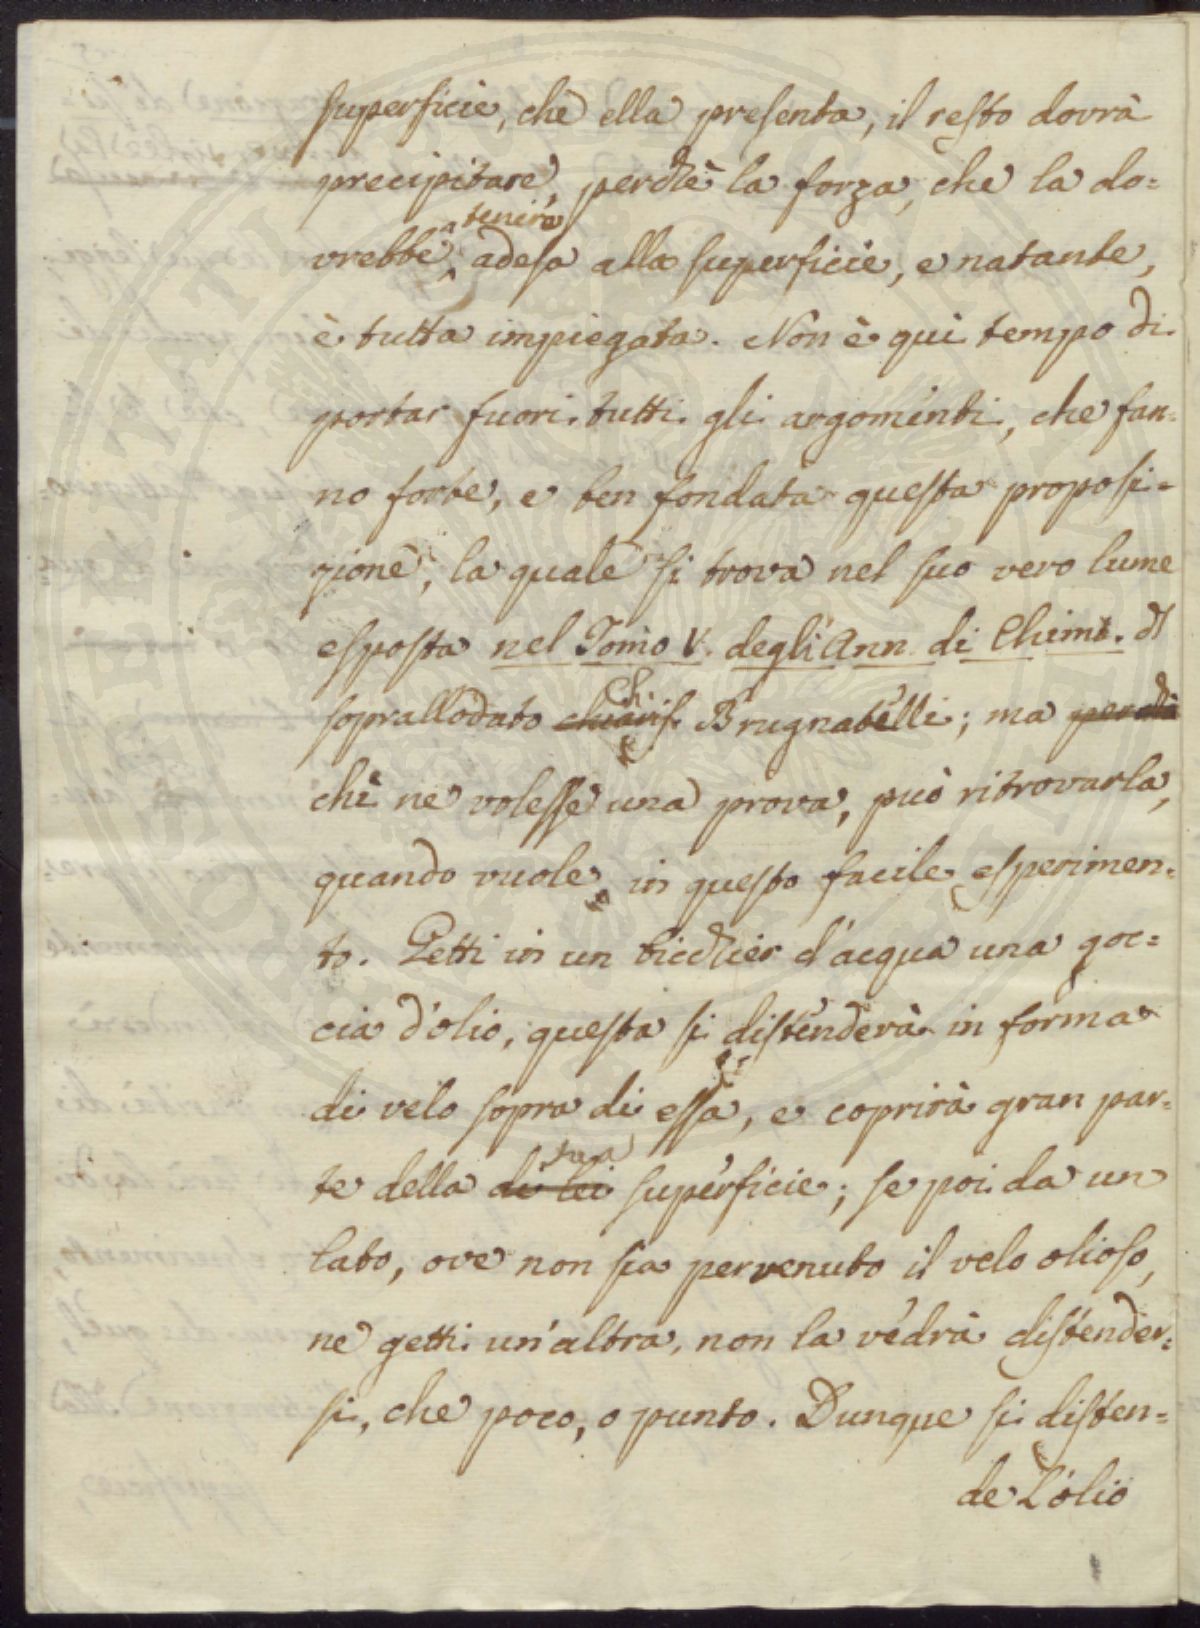 superficie, che ella presenta, il resto dovrà
precipitare, perchè la forza, che la do=
vrebbe tenire adesa alla superficie, e natante,
è tutta impiegata. Non è quì tempo di
portar fuori tutti gli argomenti, che fan=
no forte, e ben fondata questa proposi=
zione, la quale si trova nel suo vero lume
esposta nel Tomo V. degli Ann. di Chim. dl
soprallodato chiaris. Ch. Brugnatelli; ma perchè
chi ne volesse una prova, può ritrovarla,
quando vuole, in questo facile esperimen=
to. Getti in un bicchier d'acqua una goc=
cia d'olio, questa si distenderà in forma
di velo sopra di essa, e coprirà gran par=
te della di lei sua superficie; se poi da un
lato, ove non sia pervenuto il velo olioso,
ne getti un'altra, non la vedrà distender=
si, che poco, o punto. Dunque si disten=
de L'olio